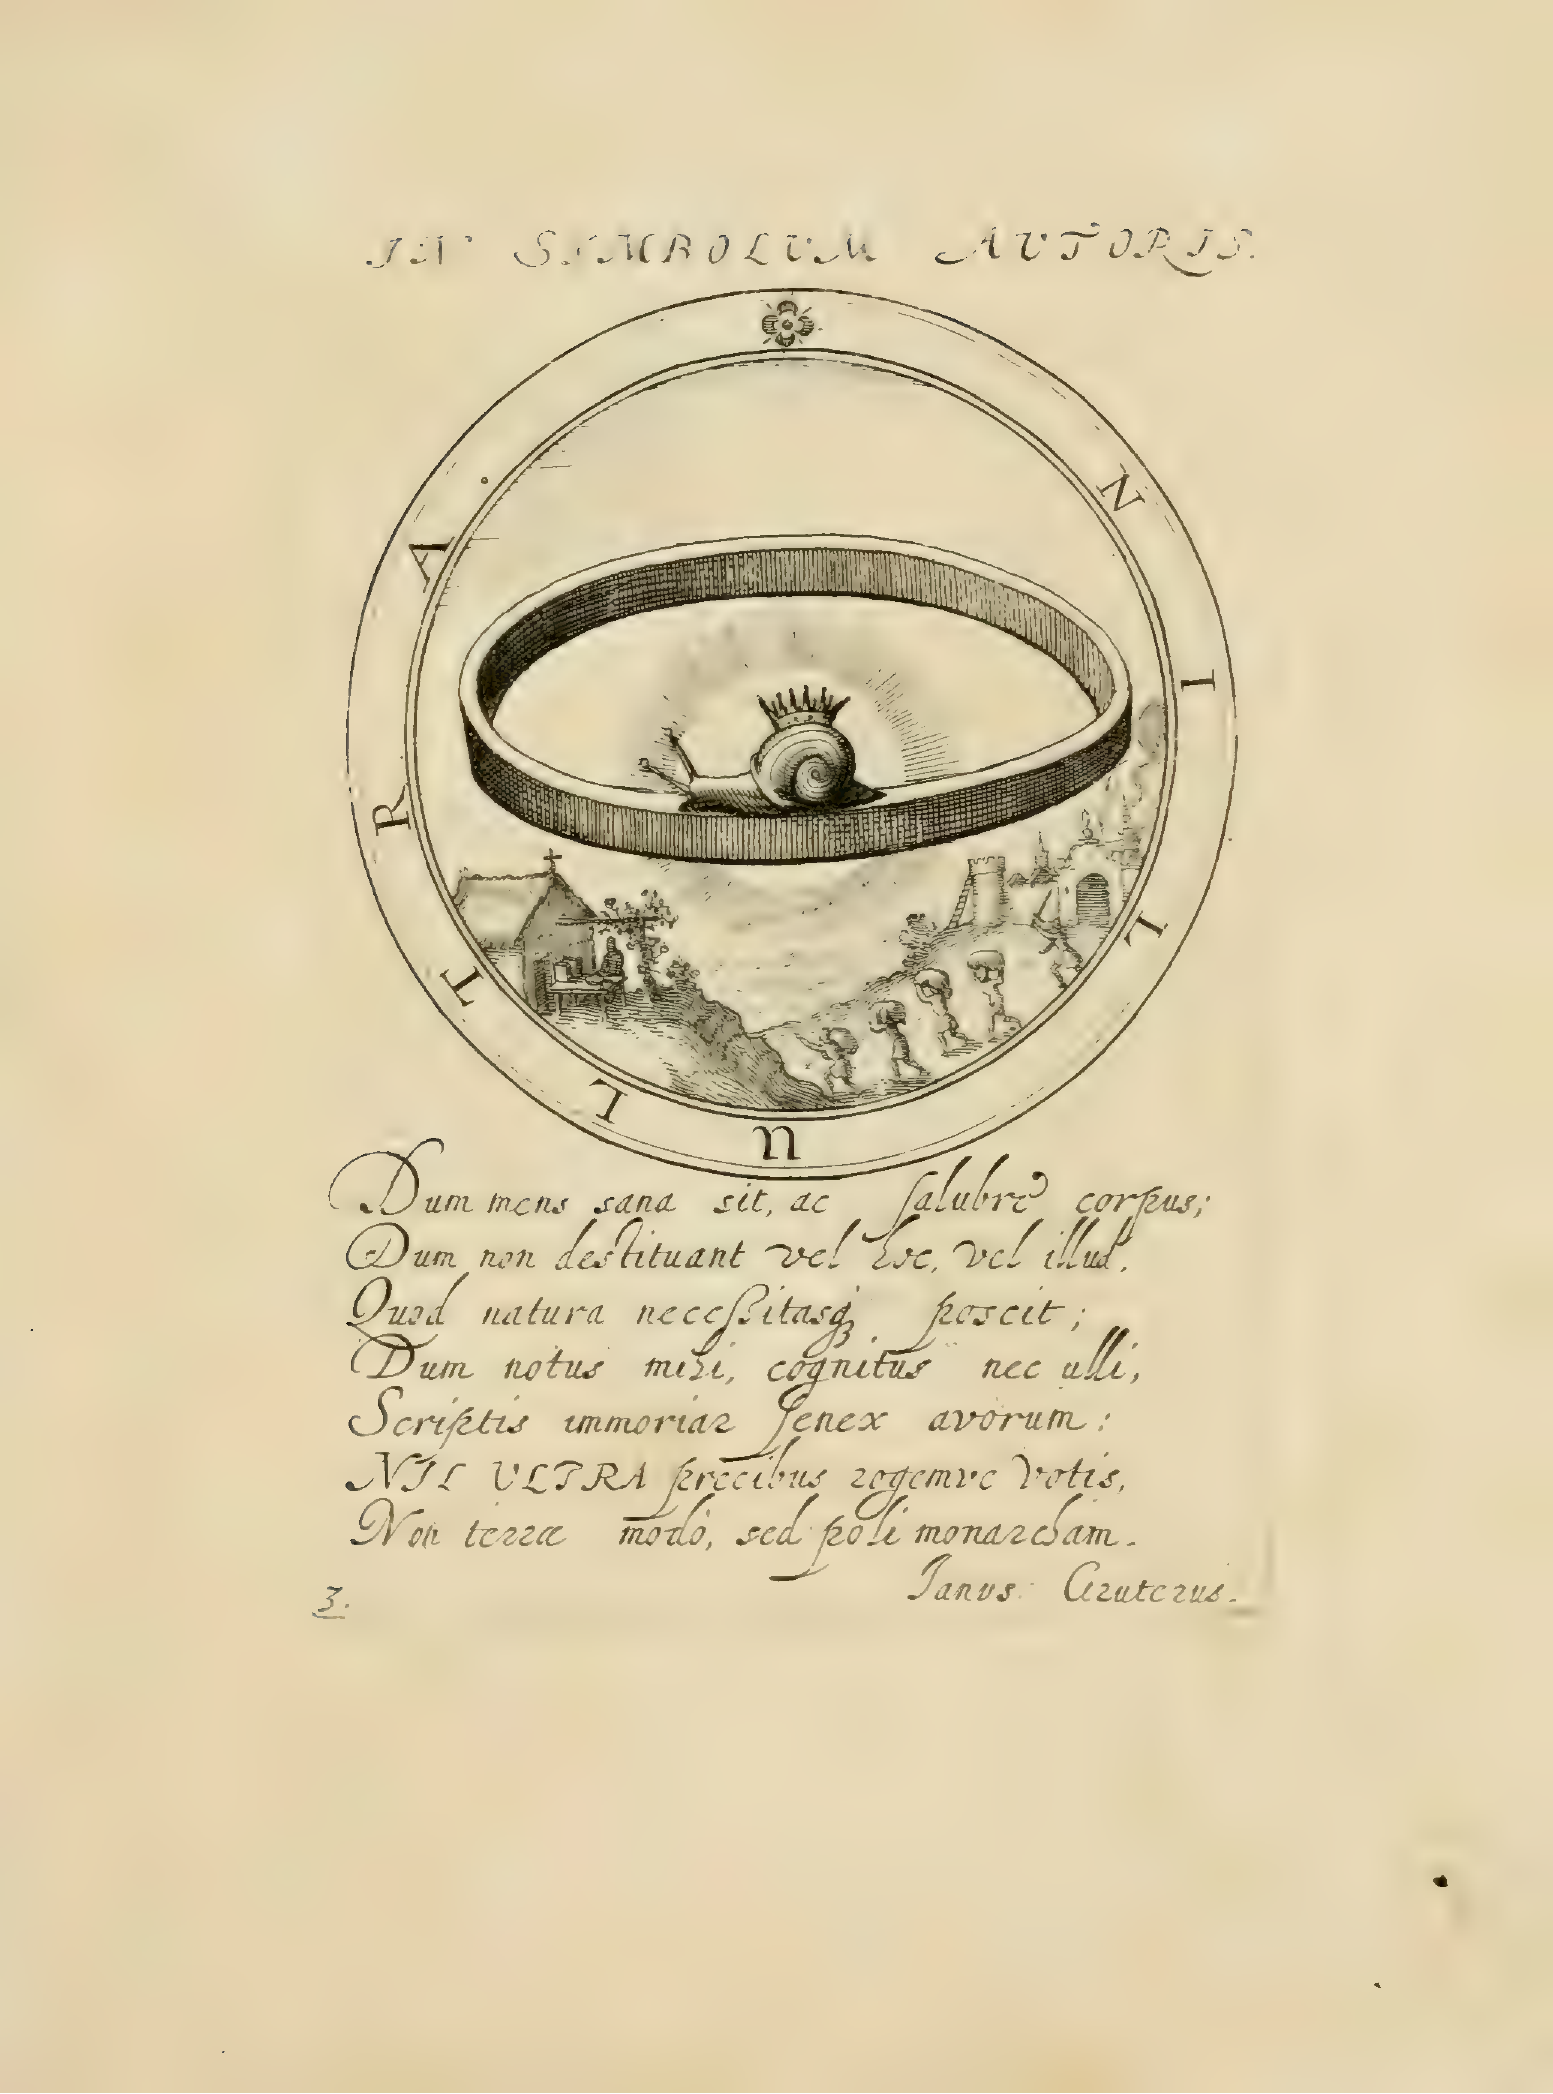 IN SYMBOLUM AUTORIS.
NIL ULTRA
Dum mens sana sit, ac salubre corpus;
Dum non destituant vel hoc, vel illud,
Quod natura necessitasq; poscit;
Dum notus mihi, cognitus nec ulli,
Scriptis immoriar senex avorum:
NIL ULTRA precibus rogemve votis,
Non terræ modò, sed poli monarcham.
Janus Gruterus.
3.